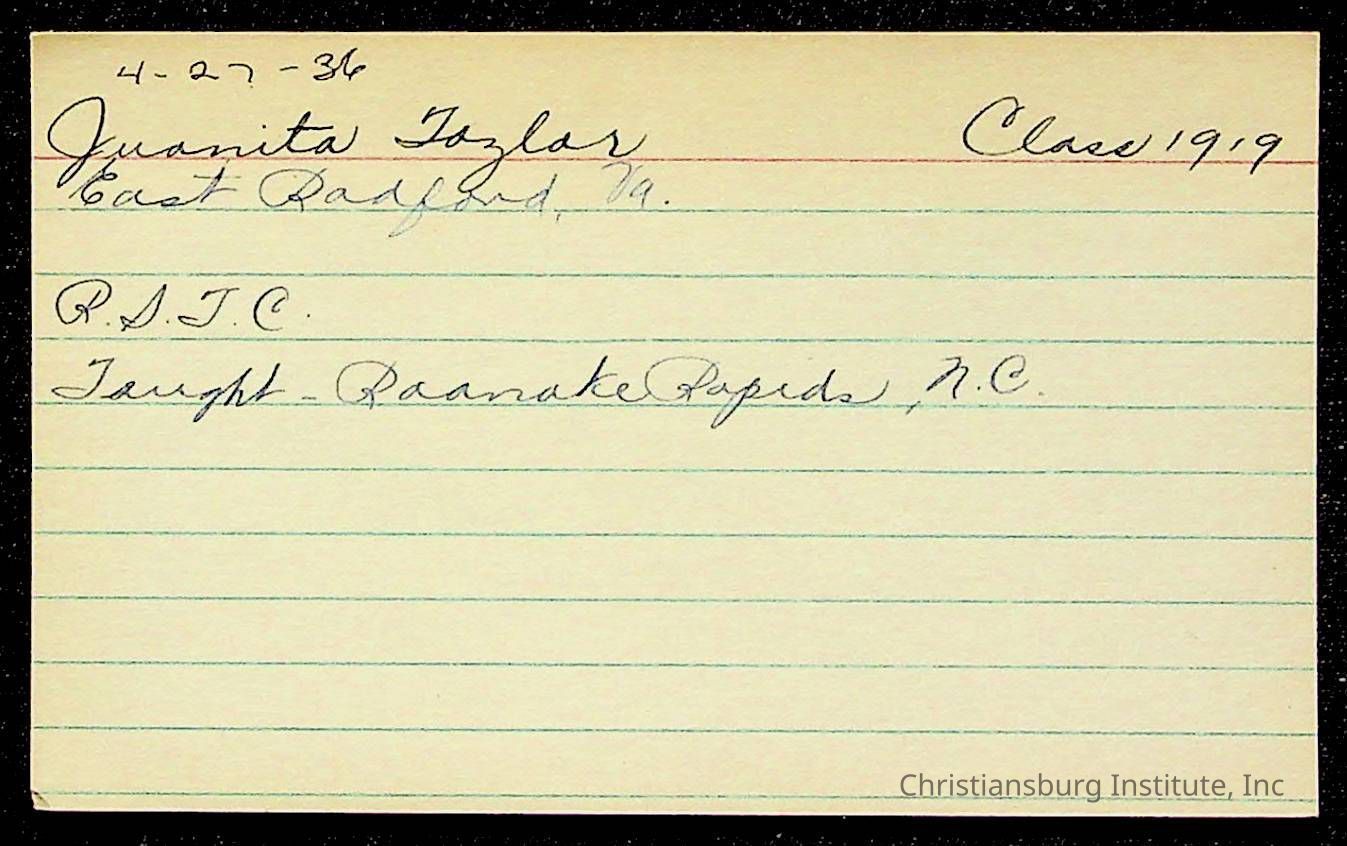 4-27-36
Juanita Taylor Class 1919
East Radford, Va.
R.S.T.C.
Taught - Roanoke Rapids, N.C.
Christiansburg Institute, Inc